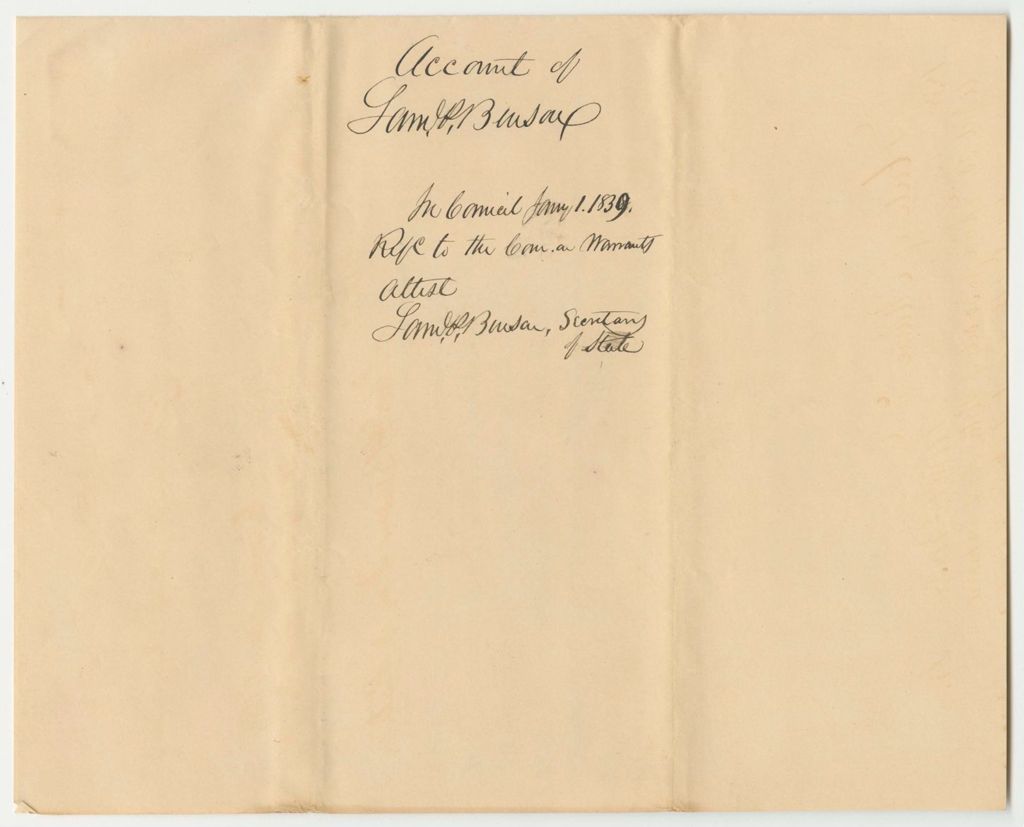 Account of
Saml. P. Benson
In Council Jany 1. 1839.
Refd to the Com. on Warrants
Attest
Saml. P. Benson, Secretary
of State